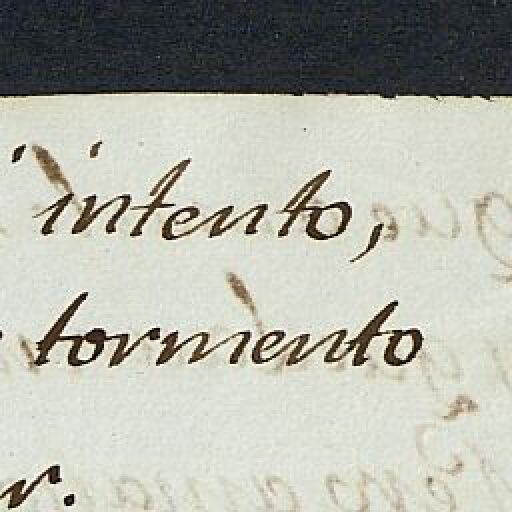 intento,
tormento
r.